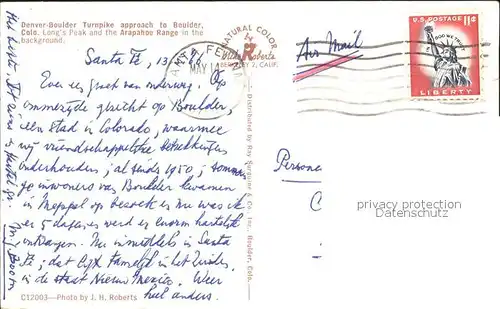 Denver-Boulder Turnpike approach to Boulder,
Colo. Long's Peak and the Arapahoe Range in the
background.
Santa Fé, 13
Even een groet van onderweg. Op
ommezijde gezicht op Boulder,
een stad in Colorado, waarmee
wij vriendschappelijke betrekkingen
onderhouden; al sinds 1950;
inwoners van Boulder kwamen
in Meppel op bezoek en nu was ik
er 5 dagen en werd er enorm hartelijk
ontvangen. Nu inmiddels in Santa
Fé; dat ligt tamelijk in het Zuiden,
in de staat Nieuw Mexico. Weer
heel anders.
C12003-Photo by J. H. Roberts
NATURAL COLOR
by
Mike Roberts
BERKELEY 2, CALIF.
SANTA FE
MAY 14
Distributed by Ray Burgener & Co. Inc., Boulder, Colo.
Air Mail
U.S. POSTAGE 11¢
IN GOD WE TRUST
LIBERTY
Persone
C
privacy protection
Datenschutz